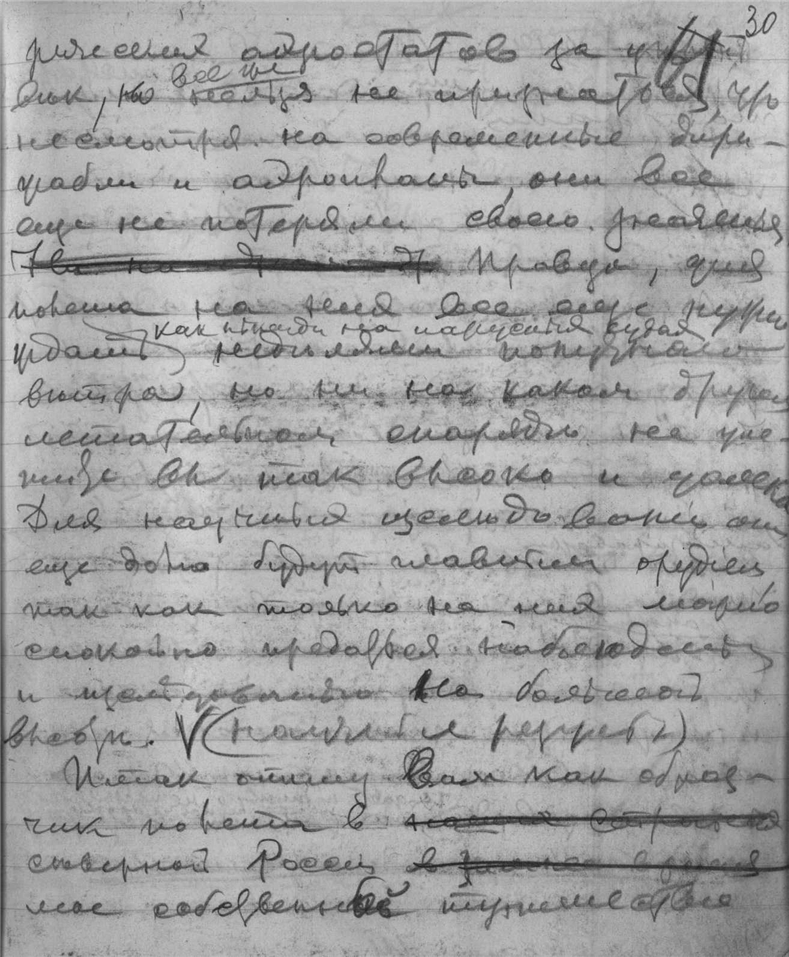 30
рических аэростатов за
век, но все же нельзя не признаться, что
несмотря на современные дири-
жабли и аэропланы, они все
еще не потеряли своего значения
Правда, для
полета на них все еще нужно
как никогда на парусных судах
ждать неделями попутного
ветра, но ни на каком другом
летательном снаряде не уле-
тишь вы так высоко и далеко
Для научных изследований они
еще долго будут главным орудием,
так как только на них можно
спокойно предаваться наблюдениям
и изследованию на большой
высоте. V (
Итак опишу Вам как образ-
чик полета в
северной России
мое собственное путешествие